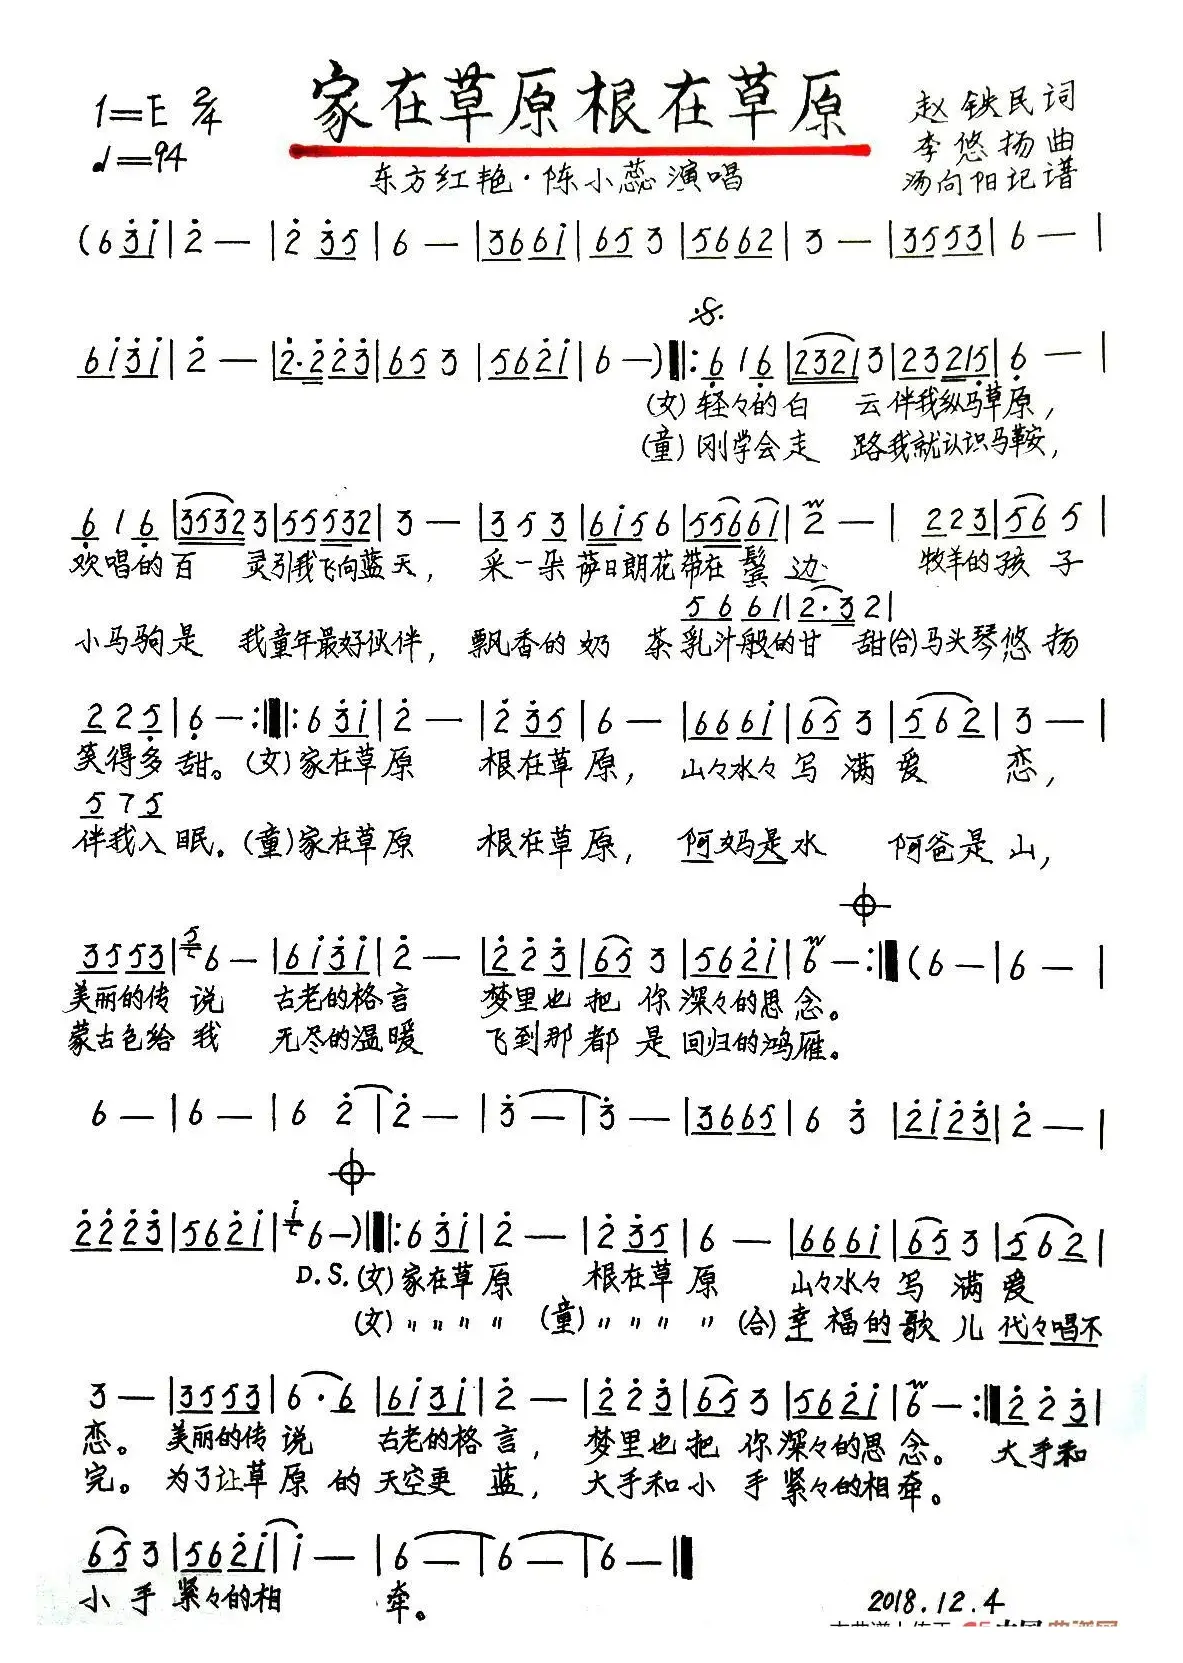 家在草原根在草原
1=E 2/4
♩=94
赵铁民词
李悠扬曲
汤向阳记谱
东方红艳·陈小蕊演唱
(6 3̇ 1̇ | 2̇ — | 2̇ 3̇ 5 | 6 — | 3 6 6 1̇ | 6 5 3 | 5 6 6 2 | 3 — | 3 5 5 3 | 6 — |
6 1̇ 3̇ 1̇ | 2̇ — | 2̇· 2̇ 2̇ 3̇ | 6 5 3 | 5 6 2̇ 1̇ | 6 —) ‖: 6̣ 1 6̣ | 2 3 2 1 3 | 2 3 2 1 5̣ | 6̣ — |
(女)轻々的白 云伴我纵马草原，
(童)刚学会走 路我就认识马鞍，
6̣ 1 6̣ | 3 5 3 2 3 | 5 5 5 3 2 | 3 — | 3 5 3 | 6 1̇ 5 6 | 5 5 6 6 1̇ | 2̇ — | 2 2 3 | 5 6 5 |
欢唱的百 灵引我飞向蓝天， 采一朵萨日朗花带在鬓边 牧羊的孩子
5 6 6 1 | 2· 3 2 |
小马驹是 我童年最好伙伴， 飘香的奶 茶乳汁般的甘 甜(合)马头琴悠扬
2 2 5̣ | 6̣ — :‖: 6 3̇ 1̇ | 2̇ — | 2̇ 3̇ 5 | 6 — | 6 6 6 1̇ | 6 5 3 | 5 6 2 | 3 — |
笑得多甜。(女)家在草原 根在草原， 山々水々写满爱 恋，
5 7 5
伴我入眠。(童)家在草原 根在草原， 阿妈是水 阿爸是山，
3 5 5 3 | 5 6 — | 6 1̇ 3̇ 1̇ | 2̇ — | 2̇ 2̇ 3̇ | 6 5 3 | 5 6 2̇ 1̇ | 6 — :‖ (6 — | 6 — |
美丽的传说 古老的格言 梦里也把你深々的思念。
蒙古包给我 无尽的温暖 飞到那都是回归的鸿雁。
6 — | 6 — | 6 2̇ | 2̇ — | 3̇ — | 3̇ — | 3 6 6 5 | 6 3̇ | 2̇ 1̇ 2̇ 3̇ | 2̇ — |
2̇ 2̇ 2̇ 3̇ | 5 6 2̇ 1̇ | 1̇ 6 —) ‖: 6 3̇ 1̇ | 2̇ — | 2̇ 3̇ 5 | 6 — | 6 6 6 1̇ | 6 5 3 | 5 6 2 |
D.S. (女)家在草原 根在草原 山々水々写满爱
(女) 〃〃〃〃 (童) 〃〃〃〃 (合)幸福的歌儿代々唱不
3 — | 3 5 5 3 | 6 · 6 | 6 1̇ 3̇ 1̇ | 2̇ — | 2̇ 2̇ 3̇ | 6 5 3 | 5 6 2̇ 1̇ | 6 — :‖ 2̇ 2̇ 3̇ |
恋。美丽的传说 古老的格言， 梦里也把你深々的思念。 大手和
完。为了让草原的天空更蓝， 大手和小手紧々的相牵。
6 5 3 | 5 6 2̇ 1̇ | 1̇ — | 6 — | 6 — | 6 — ‖
小手紧々的相 牵。
2018.12.4